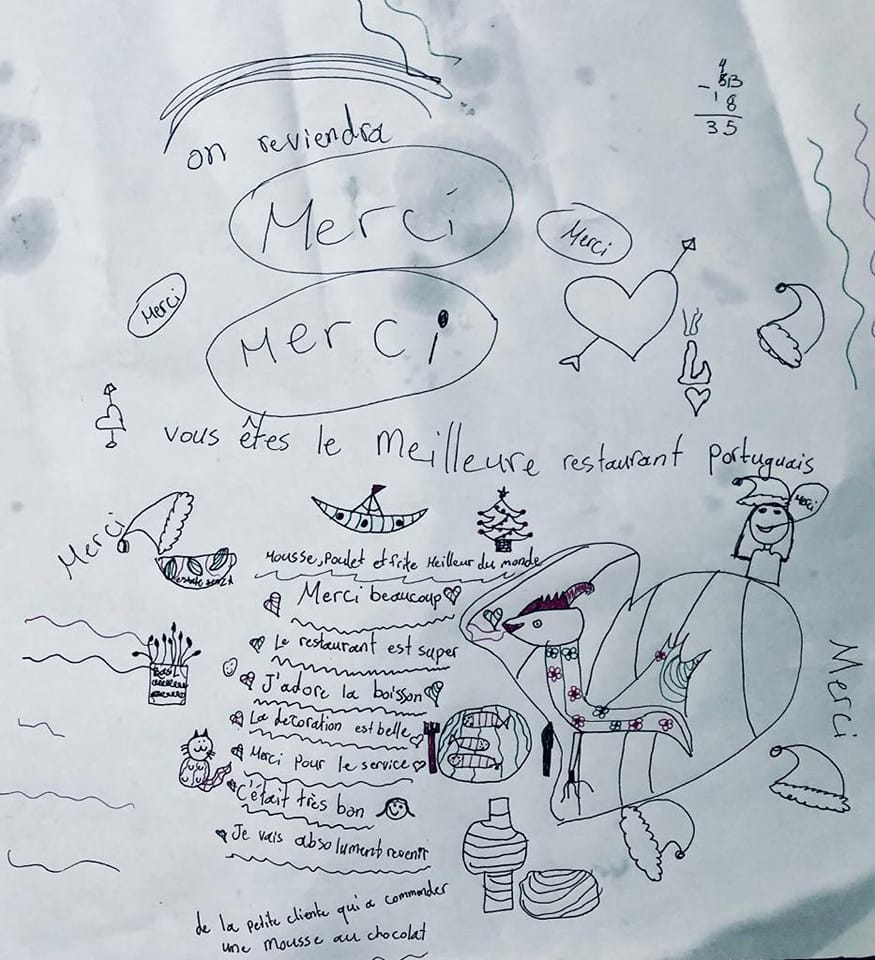 on reviendra
Merci
Merci
Merci
Merci
4
513
- 18
35
L
vous êtes le Meilleure restaurant portuguais
Merci
Merci
Mousse, Poulet et frite Meilleur du monde
Merci beaucoup
Le restaurant est super
J'adore la boisson
La décoration est belle
Merci pour le service
C'était très bon
Je vais absolument revenir
Merci
de la petite cliente qui a commander
une mousse au chocolat